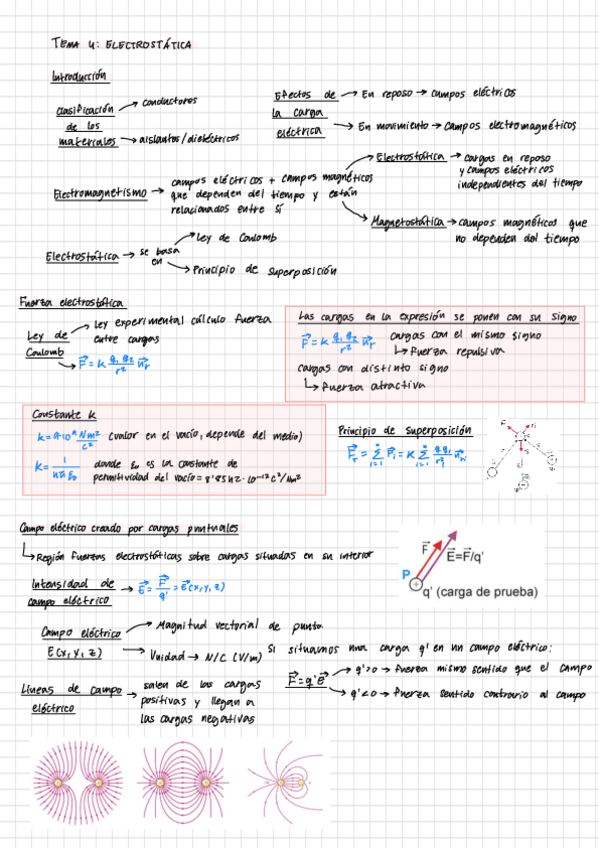 TEMA 4: ELECTROSTÁTICA
Introducción
Clasificación de los materiales → conductores
→ aislantes/dieléctricos
Efectos de la carga eléctrica → En reposo → campos eléctricos
→ En movimiento → campos electromagnéticos
Electromagnetismo → campos eléctricos + campos magnéticos
que dependen del tiempo y están
relacionados entre sí
Electrostática → cargas en reposo
y campos eléctricos
independientes del tiempo
Magnetostática → campos magnéticos que
no dependen del tiempo
Electrostática → se basa en → Ley de Coulomb
→ Principio de superposición
Fuerza electrostática
Ley de Coulomb → Ley experimental cálculo fuerza
entre cargas
→ F = K q₁ q₂ / r² u⃗r
Las cargas en la expresión se ponen con su signo
F = K q₁ q₂ / r² u⃗r
cargas con el mismo signo
↳ fuerza repulsiva
cargas con distinto signo
↳ fuerza atractiva
Constante K
K = 9·10⁹ Nm²/C² (valor en el vacío, depende del medio)
K = 1/4πε₀ donde ε₀ es la constante de
permitividad del vacío = 8'8542·10⁻¹² C²/Nm²
Principio de superposición
Campo eléctrico creado por cargas puntuales
↳ Región fuerzas electrostáticas sobre cargas situadas en su interior
Intensidad de campo eléctrico → E⃗ = F⃗/q' = E⃗(x,y,z)
F⃗ E⃗=F⃗/q'
P
q' (carga de prueba)
Campo eléctrico E(x,y,z) → Magnitud vectorial de punto
→ Unidad → N/C (V/m)
Si situamos una carga q' en un campo eléctrico:
F⃗ = q'E⃗ → q'>0 → fuerza mismo sentido que el campo
→ q'<0 → fuerza sentido contrario al campo
Líneas de campo eléctrico → salen de las cargas
positivas y llegan a
las cargas negativas